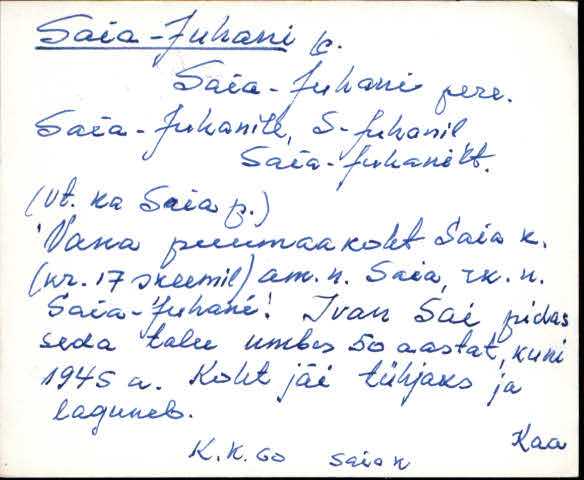 Saia-Juhani k.
Saia-Juhani pere.
Saia-Juhanile, S-Juhanil
Saia-Juhanilt.
(vt. ka Saia p.)
Vana puumaakoht Saia k.
(nr. 17 skeemil) am. n. Saia, rk. n.
Saia-Juhani! Ivan Sai pidas
seda talu umbes 50 aastat, kuni
1945 a. Koht jäi tühjaks ja
laguneb.
Kaa
K.K.60 Saia k